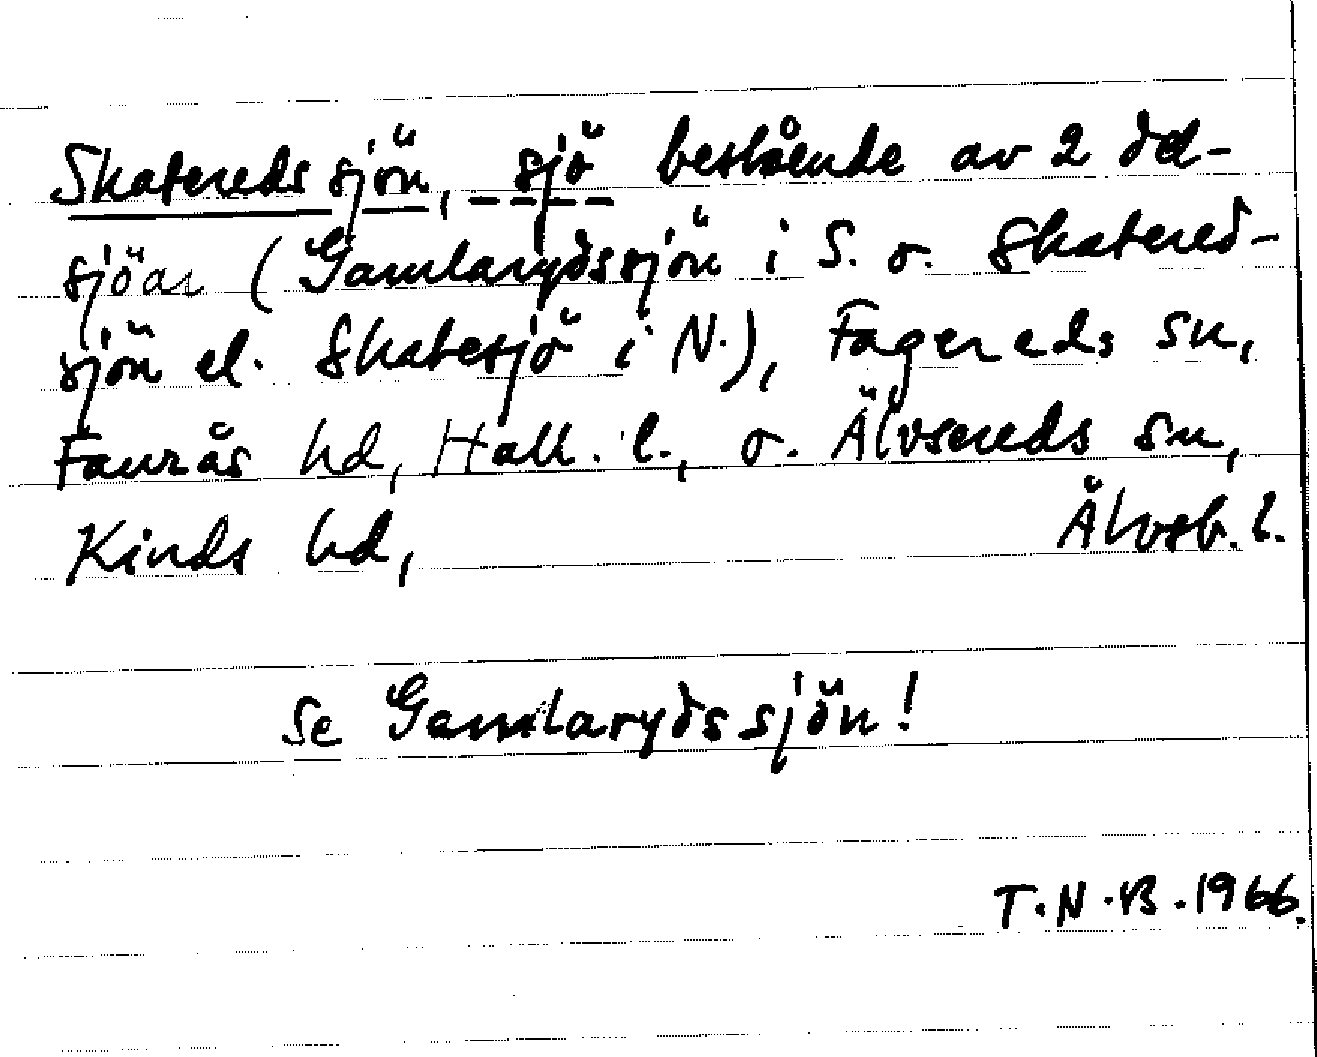 Skateredssjön, sjö bestående av 2 del-
sjöar (Gamlarydssjön i S. o. Skatered-
sjön el. Skatesjö i N.), Fagereds sn,
Faurås hd, Hall. l., o. Älvsereds sn,
Kinds hd, Älvsb. l.
Se Gamlarydssjön!
T.N.B. 1966.